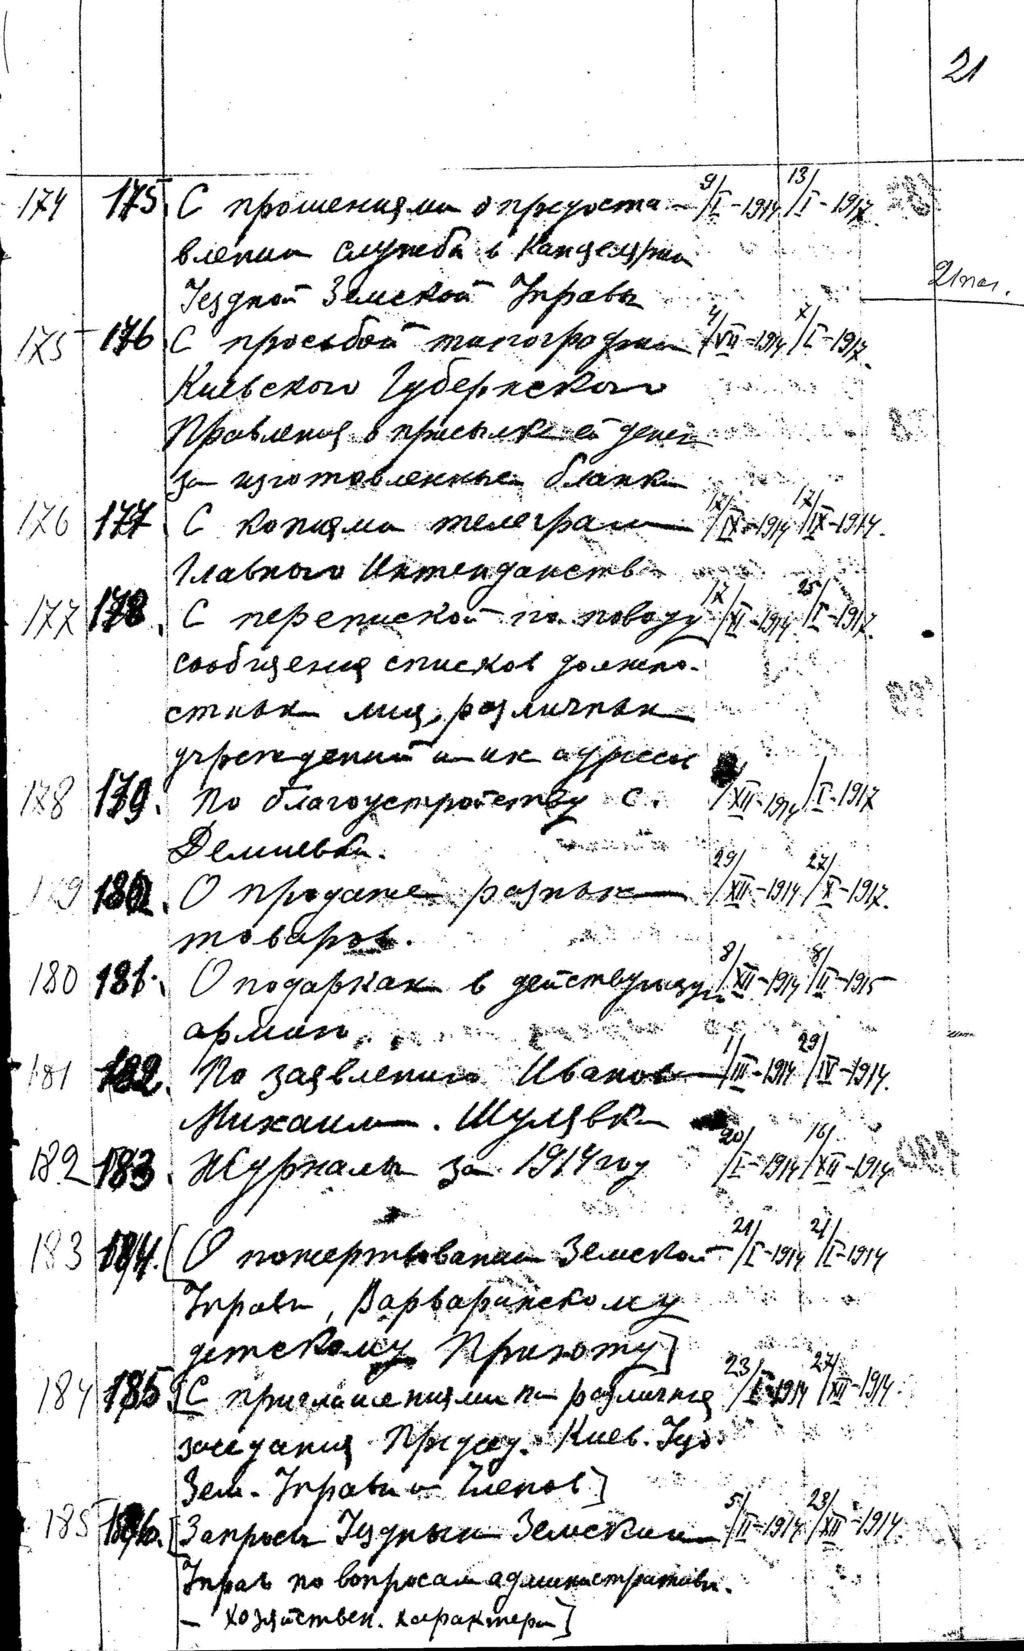 21
174 175. С прошениями о предоста- 9/I-1914 13/I-1917.
влении службы в Канцелярии
Уездной Земской Управы
2 пол.
175 176. С просьбой типографии 4/VII-1914 7/I-1917.
Киевского Губернского
Правления о присылке ей денег
за изготовленные бланки
176 177. С копиями телеграмм 17/IX-1914 17/IX-1914.
Главного Интендантства
177 178. С перепиской по поводу 17/XI-1914 25/I-1917.
сообщения списков должно-
стных лиц, различных
учреждений и их адреса
178 179. По благоустройству с. /XII-1914 /I-1917
Демиевки.
179 180. О продаже разных 29/XII-1914 27/X-1917.
товаров.
180 181. О подарках в действующую 8/XII-1914 8/II-1915
армию.
181 182. По заявлению Иванова 1/III-1914 29/IV-1914.
Михаила. Шулявка
182 183. Журналы за 1914 год 20/I-1914 16/XII-1914.
183 184. [О пожертвовании Земской 21/I-1914 21/I-1914
Управы, Варваринскому
детскому Приюту]
184 185. [С приглашениями на различные 23/I-1914 27/XII-1914.
заседания Председ. Киев. Губ.
Зем. Управы и Членов]
185 186. [Запросы Уездным Земским 5/II-1914 23/XII-1914.
Управ по вопросам административн.
- хозяйствен. характера]